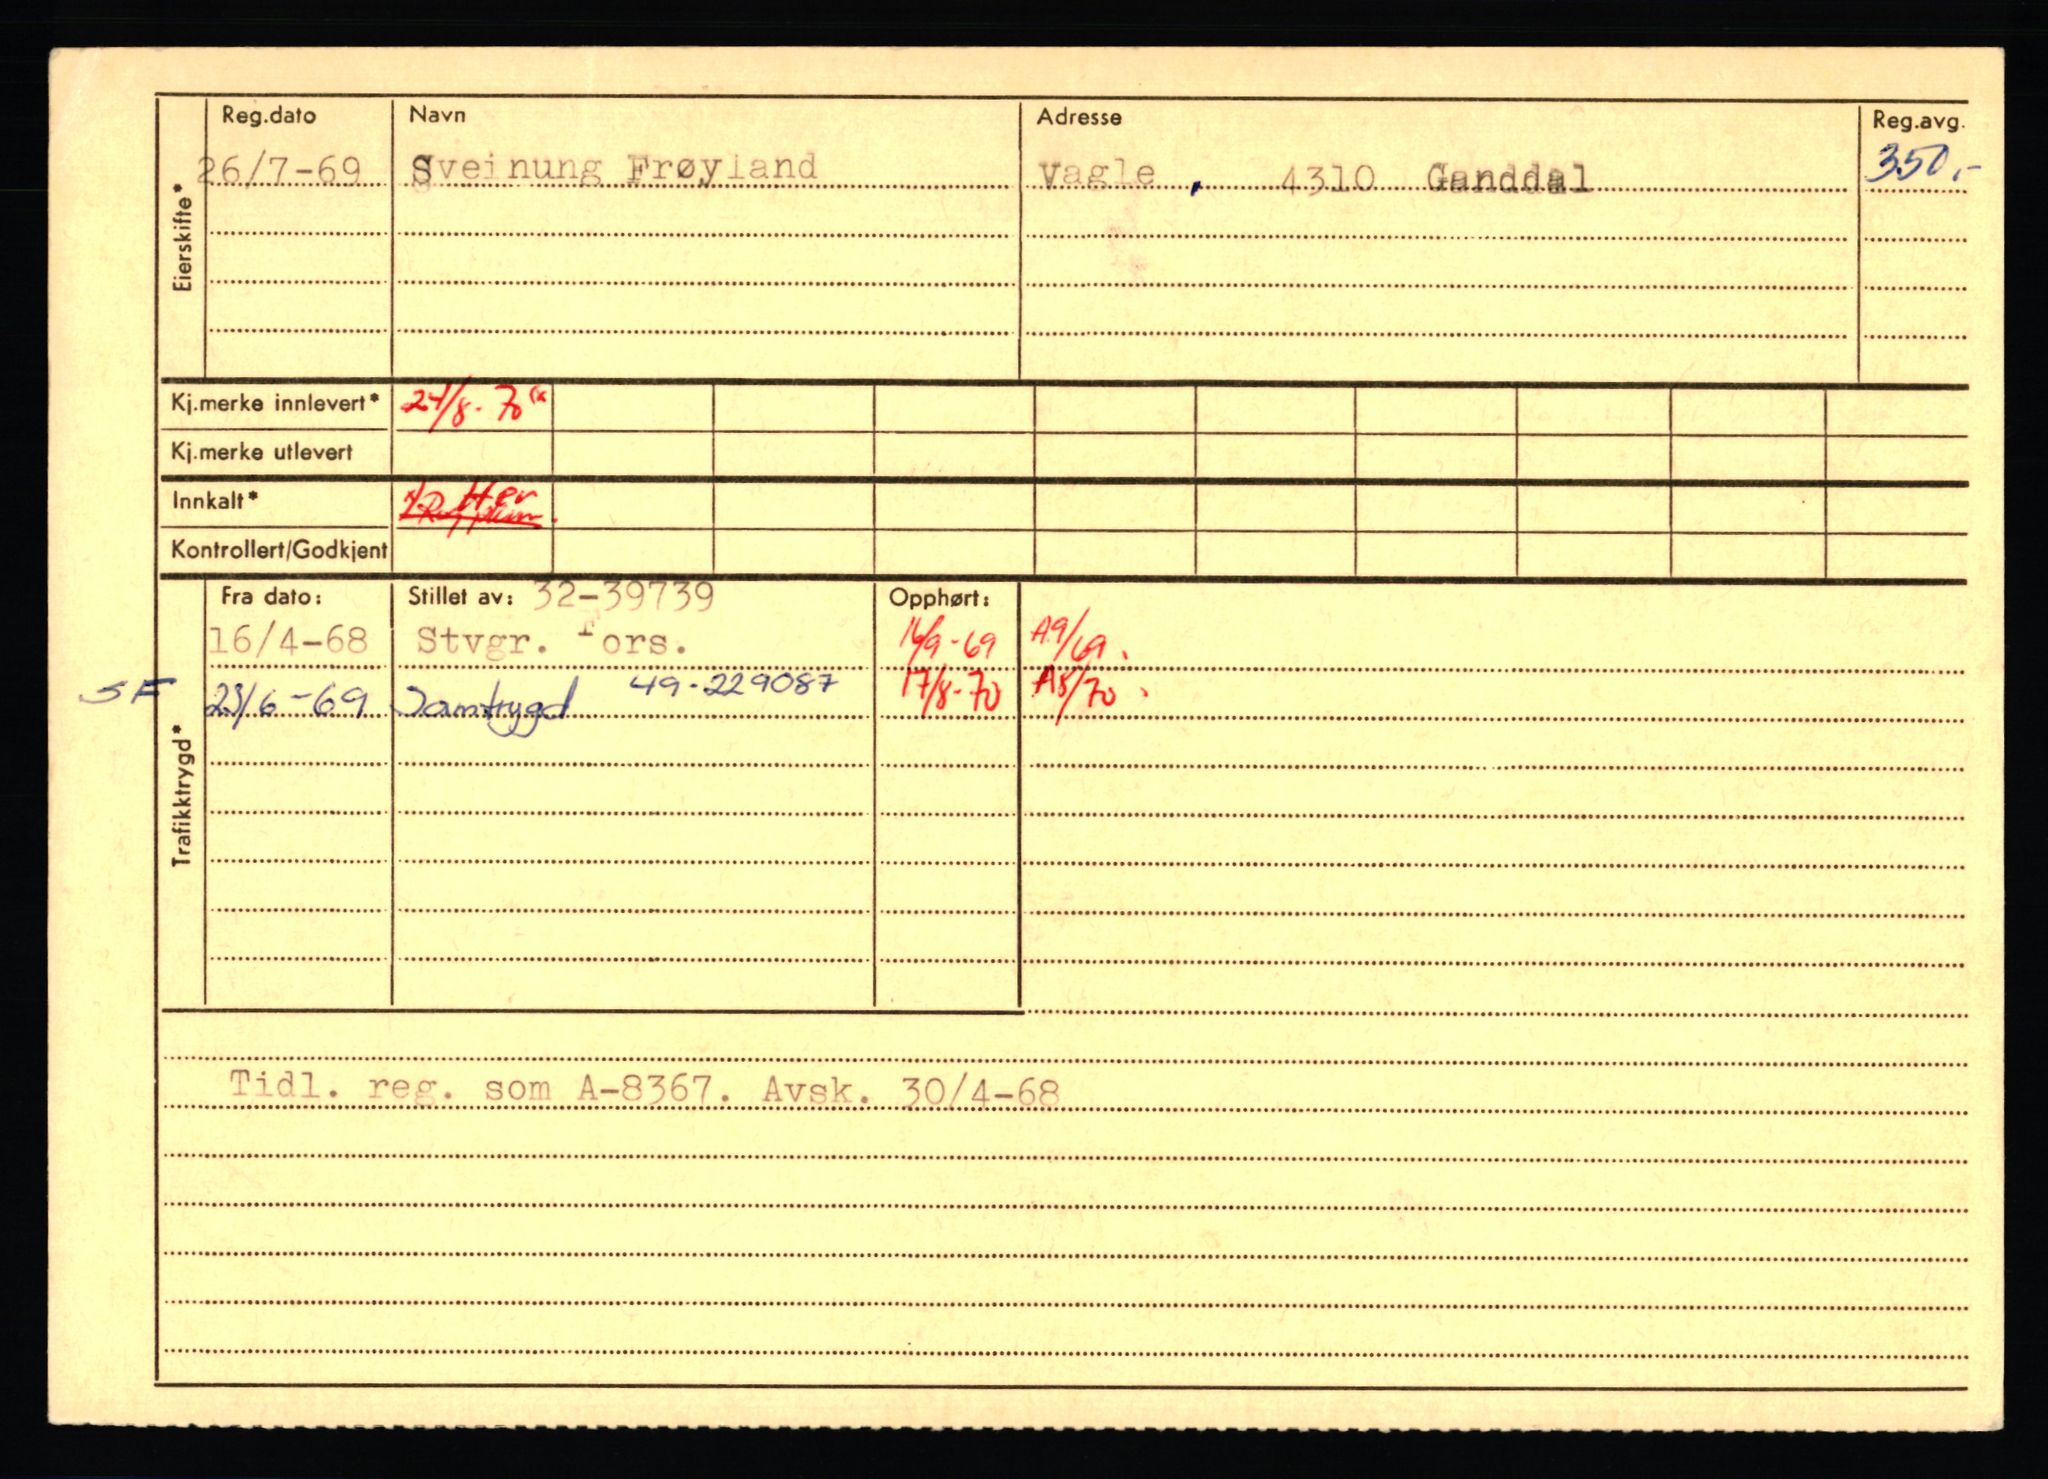 Eierskifte*
Reg.dato Navn Adresse Reg.avg.
26/7-69 Sveinung Frøyland Vagle , 4310 Ganddal 350,-
Kj.merke innlevert* 24/8-70 (x
Kj.merke utlevert
Innkalt* x) Her
Kontrollert/Godkjent
Trafikktrygd*
Fra dato: Stillet av: 32-39739 Opphørt:
16/4-68 Stvgr. Fors. 16/9-69 A9/69.
SF 23/6-69 Samtrygd 49-229087 17/8-70 A8/70.
Tidl. reg. som A-8367. Avsk. 30/4-68